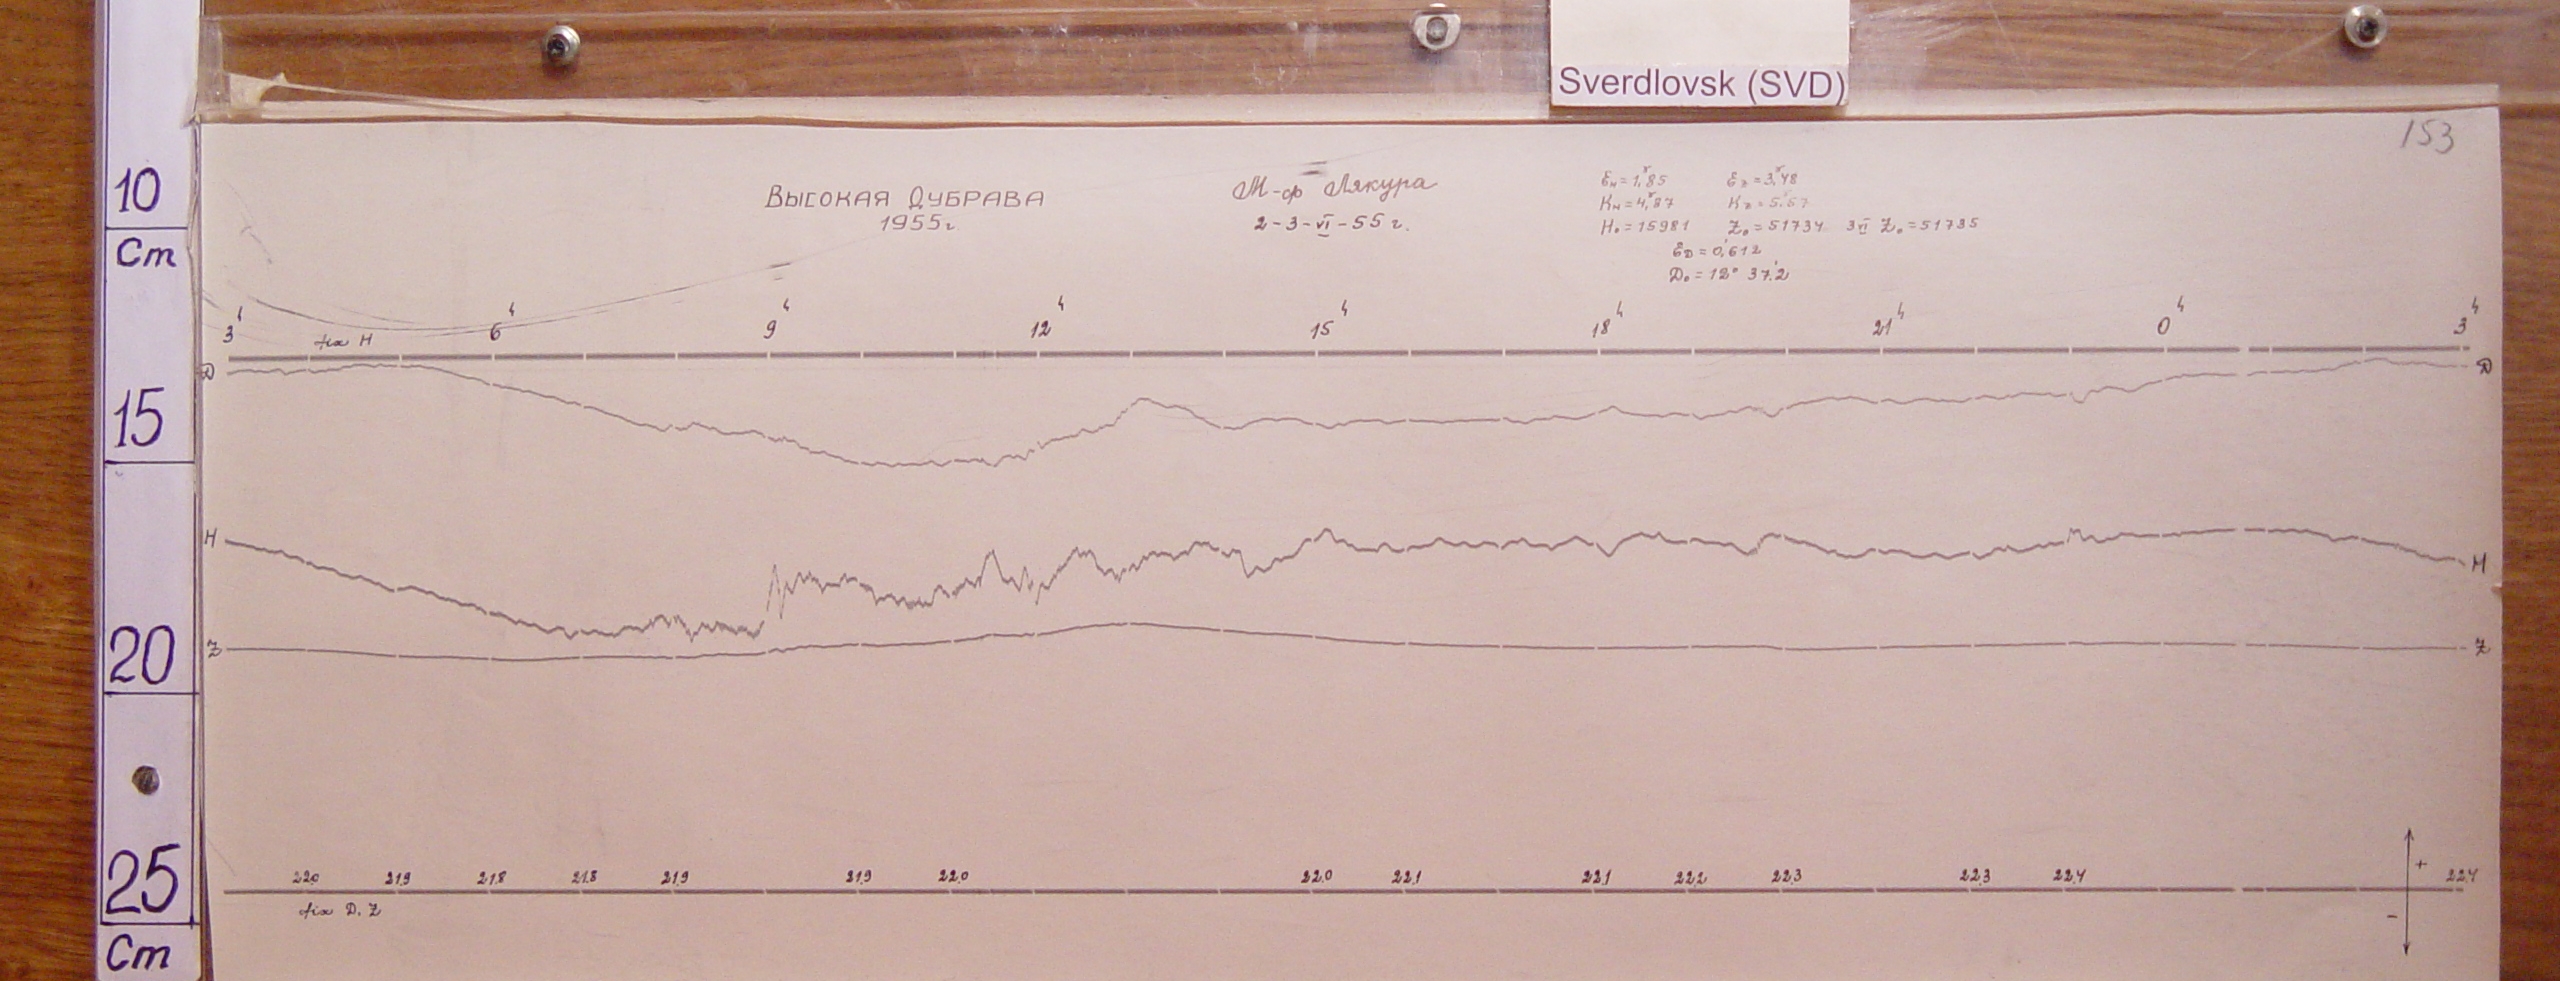 Sverdlovsk (SVD)
153
10
Cm
15
20
25
Cm
ВЫСОКАЯ ДУБРАВА
1955г.
М-ф Лякура
2-3-VI-55 г.
Ɛн=1,ˠ85 Ɛz=3,ˠ48
Kн=4,ˠ87 Kz=5,ˠ57
H₀=15981 Z₀=51734 3VI Z₀=51735
ƐD=0,'612
D₀=18° 37,'2
3ч 6ч 9ч 12ч 15ч 18ч 21ч 0ч 3ч
fix H
D D
H H
Z Z
22,0 21,9 21,8 21,8 21,9 21,9 22,0 22,0 22,1 22,1 22,2 22,3 22,3 22,4 22,4
fix D, Z
+
-